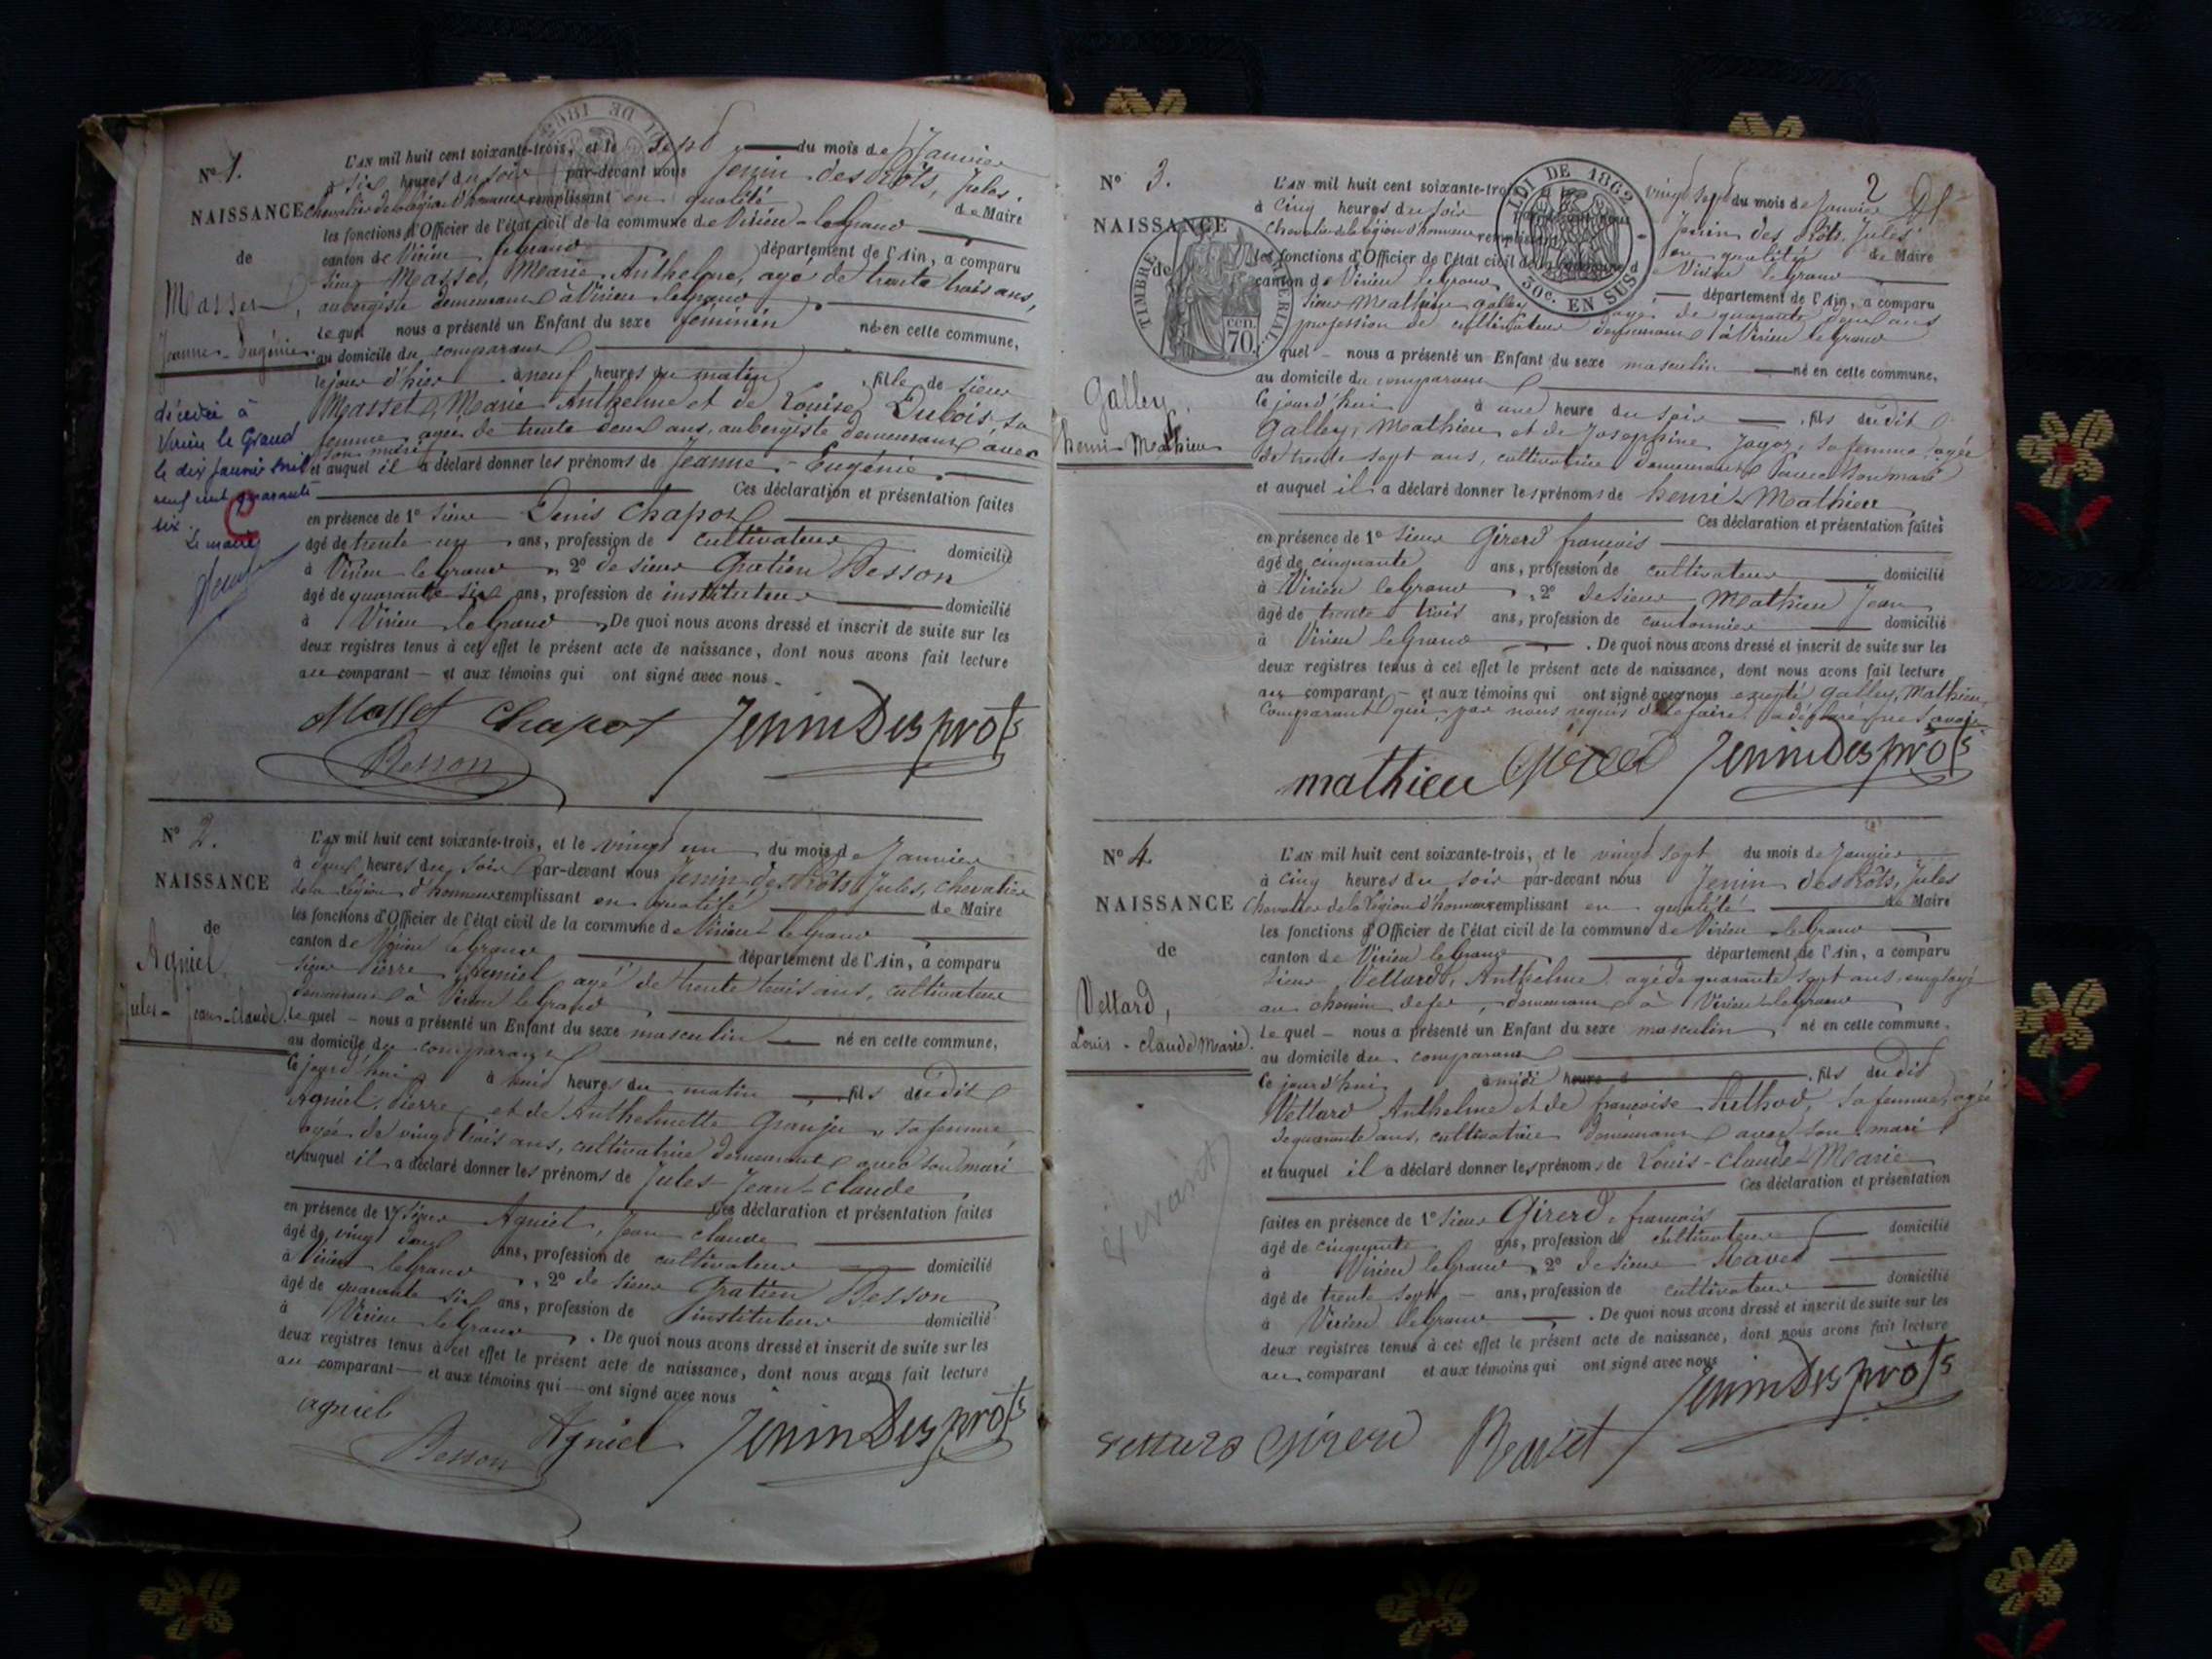 N° 1.
NAISSANCE
de
Masset,
Jeanne-Eugénie
décédée à
Virieu le Grand
le dix janvier mil
neuf cent quarante
six.
Le maire
L'AN mil huit cent soixante-trois, et le sept du mois de Janvier
à six heures du soir par-devant nous Jenin des Prôts, Jules,
chevalier de la légion d'honneur remplissant en qualité de Maire
les fonctions d'Officier de l'état civil de la commune de Virieu-le-Grand
canton de Virieu legrand département de l'Ain, a comparu
sieur Masset, Marie Anthelme, agé de trente trois ans,
aubergiste demeurant à Virieu legrand
le quel nous a présenté un Enfant du sexe féminin né en cette commune,
au domicile du comparant
le jour d'hier à neuf heures du matin, fille de sieur
Masset, Marie Anthelme et de Louise Dubois, sa
femme, agée de trente deux ans, aubergiste demeurant avec
son mari
et auquel il a déclaré donner les prénoms de Jeanne-Eugénie
Ces déclaration et présentation faites
en présence de 1° sieur Denis Chapot
âgé de trente un ans, profession de cultivateur domicilié
à Virieu legrand, 2° de sieur Gratien Besson
âgé de quarante six ans, profession de instituteur domicilié
à Virieu le Grand. De quoi nous avons dressé et inscrit de suite sur les
deux registres tenus à cet effet le présent acte de naissance, dont nous avons fait lecture
au comparant et aux témoins qui ont signé avec nous.
Masset Chapot Jenin Des prôts
Besson
N° 2.
NAISSANCE
de
Agniel
Jules-Jean-Claude
L'AN mil huit cent soixante-trois, et le vingt un du mois de Janvier
à deux heures du soir par-devant nous Jenin des Prôts Jules, chevalier
de la légion d'honneur remplissant en qualité de Maire
les fonctions d'Officier de l'état civil de la commune de Virieu le Grand
canton de Virieu le Grand département de l'Ain, a comparu
sieur Pierre Agniel, agé de trente trois ans, cultivateur
demeurant à Virieu le Grand
le quel nous a présenté un Enfant du sexe masculin né en cette commune,
au domicile du comparant
ce jourd'hui à huit heures du matin, fils du dit
Agniel, Pierre, et de Anthelmette Granju, sa femme,
agée de vingt trois ans, cultivatrice demeurant avec son mari
et auquel il a déclaré donner les prénoms de Jules-Jean-Claude
Ces déclaration et présentation faites
en présence de 1° sieur Agniel, Jean Claude
âgé de vingt deux ans, profession de cultivateur domicilié
à Virieu legrand, 2° de sieur Gratien Besson
âgé de quarante six ans, profession de instituteur domicilié
à Virieu le Grand. De quoi nous avons dressé et inscrit de suite sur les
deux registres tenus à cet effet le présent acte de naissance, dont nous avons fait lecture
au comparant et aux témoins qui ont signé avec nous
agniel
Besson Agniel Jenin Des prôts
2
LOI DE 1862
50c. EN SUS
TIMBRE IMPERIAL
cen. 70
N° 3.
NAISSANCE
de
Galley,
henri-Mathieu
L'AN mil huit cent soixante-trois vingt sept du mois de Janvier
à cinq heures du soir Jenin des Prôts, Jules
Chevalier de la légion d'honneur remplissant en qualité de Maire
les fonctions d'Officier de l'état civil de la commune de Virieu le Grand
canton de Virieu le Grand département de l'Ain, a comparu
sieur Mathieu Galley agé de quarante deux ans
profession de cultivateur demeurant à Virieu le Grand
quel nous a présenté un Enfant du sexe masculin né en cette commune,
au domicile du comparant
ce jourd'hui à une heure du soir, fils du dit
Galley, Mathieu et de Josephine Jagoz, sa femme, agée
de trente sept ans, cultivatrice demeurant avec son mari
et auquel il a déclaré donner les prénoms de henri-Mathieu
Ces déclaration et présentation faites
en présence de 1° sieur Girerd francois
âgé de cinquante ans, profession de cultivateur domicilié
à Virieu le Grand, 2° de sieur Mathieu Jean
âgé de trente trois ans, profession de cantonnier domicilié
à Virieu le Grand. De quoi nous avons dressé et inscrit de suite sur les
deux registres tenus à cet effet le présent acte de naissance, dont nous avons fait lecture
au comparant et aux témoins qui ont signé avec nous excepté Galley, Mathieu,
comparant qui, par nous requis de le faire, a déclaré ne savoir
mathieu Girerd Jenin Des prôts
N° 4.
NAISSANCE
de
Vettard,
Louis-Claude Marie
L'AN mil huit cent soixante-trois, et le vingt sept du mois de Janvier
à cinq heures du soir par-devant nous Jenin des Prôts, Jules
Chevalier de la légion d'honneur remplissant en qualité de Maire
les fonctions d'Officier de l'état civil de la commune de Virieu le Grand
canton de Virieu le Grand département de l'Ain, a comparu
sieur Vettard, Anthelme agé de quarante sept ans, employé
au chemin de fer, demeurant à Virieu-le-Grand
le quel nous a présenté un Enfant du sexe masculin né en cette commune,
au domicile du comparant
ce jourd'hui à midi heure, fils du dit
Vettard Anthelme et de françoise sa femme, agée
de quarante ans, cultivatrice demeurant avec son mari
et auquel il a déclaré donner les prénoms de Louis-Claude-Marie
Ces déclaration et présentation
faites en présence de 1° sieur Girerd, francois
âgé de cinquante ans, profession de cultivateur domicilié
à Virieu le Grand, 2° de sieur Ravet
âgé de trente sept ans, profession de cultivateur domicilié
à Virieu le Grand. De quoi nous avons dressé et inscrit de suite sur les
deux registres tenus à cet effet le présent acte de naissance, dont nous avons fait lecture
au comparant et aux témoins qui ont signé avec nous
Girerd Ravet Jenin Des prôts